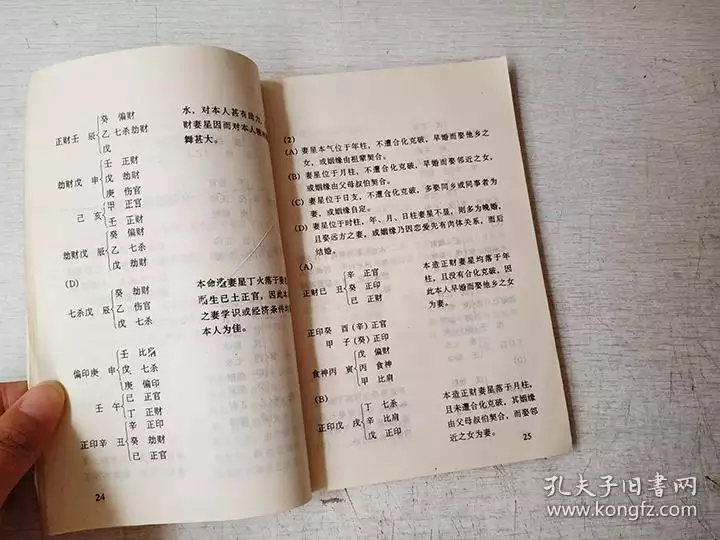 癸 偏财
正财壬 辰 乙 七杀劫财
戊
壬 正财
劫财戊 申 戊 劫财
庚 伤官
己 亥 甲 正官
壬 正财
癸 偏财
劫财戊 辰 乙 七杀
戊 劫财
(D)
癸 劫财
七杀戊 辰 乙 伤官
戊 七杀
壬 比肩
偏印庚 申 戊 七杀
庚 偏印
壬 午 己 正官
丁 正财
辛 正印
正印辛 丑 癸 劫财
己 正官
水，对本人甚有
财妻星因而对本人
舞甚大。
本命造妻星丁火落于妻
而生己土正官，因此本
之妻学识或经济条件
本人为佳。
24
(2)
(A) 妻星本气位于年柱，不遭合化克破，早婚而娶他乡之
女，或姻缘由祖辈契合。
(B) 妻星位于月柱，不遭合化克破，早婚而娶邻近之女，
或姻缘由父母叔伯契合。
(C) 妻星位于日支，不遭合化克破，多娶同乡或同事者为
妻，或姻缘自定。
(D) 妻星位于时柱，年、月、日柱妻星不显，则多为晚婚，
且娶远方之妻，或姻缘乃因恋爱先有肉体关系，而后
结婚。
(A)
辛 正官
正财己 丑 癸 正印
己 正财
正印癸 酉 (辛) 正官
甲 子 (癸) 正印
戊 偏财
食神丙 寅 丙 食神
甲 比肩
本造正财妻星均落于年
柱，且没有合化克破，因
此本人早婚而娶他乡之女
为妻。
(B)
丁 七杀
正印戊 戌 辛 比肩
戊 正印
本造正财妻星落于月柱，
且未遭合化克破，其姻缘
由父母叔伯契合，而娶邻
近之女为妻。
25
孔夫子旧书网
www.kongfz.com